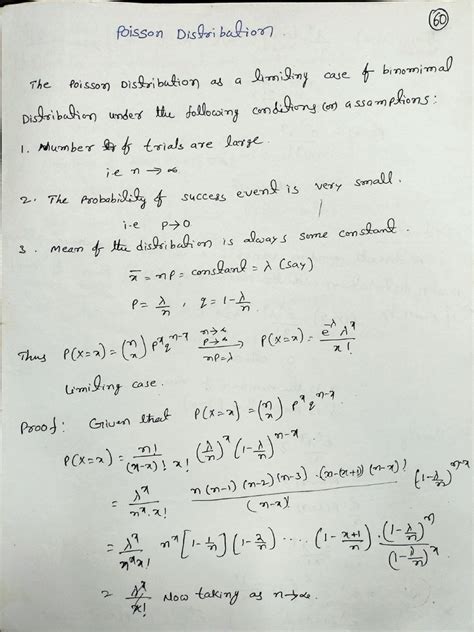 60
Poisson Distribution.
The Poisson Distribution as a limiting case of binomimal
Distribution under the following conditions (or) assumptions:
1. Number of trials are large.
i.e n → ∞
2. The Probability of success event is very small.
i.e P→0
3. Mean of the distribution is always some constant.
x̄ = np = constant = λ (say)
P = λ/n , q = 1 - λ/n
Thus P(X=x) = (n x) p^x q^(n-x) n→∞ P→0 nP=λ → P(X=x) = e^(-λ) λ^x / x!
Limiting case.
Proof: Given that P(X=x) = (n x) p^x q^(n-x)
P(X=x) = n! / (n-x)! x! (λ/n)^x (1-λ/n)^(n-x)
= λ^x / n^x . x! n(n-1)(n-2)(n-3) . (n-(x+1)) (n-x)! / (n-x)! (1-λ/n)^(n-x)
= λ^x / n^x x! n^x [1-1/n] (1-2/n) ..... (1 - x+1/n) . (1-λ/n)^n / (1-λ/n)^x
= λ^x / x! Now taking as n→∞.